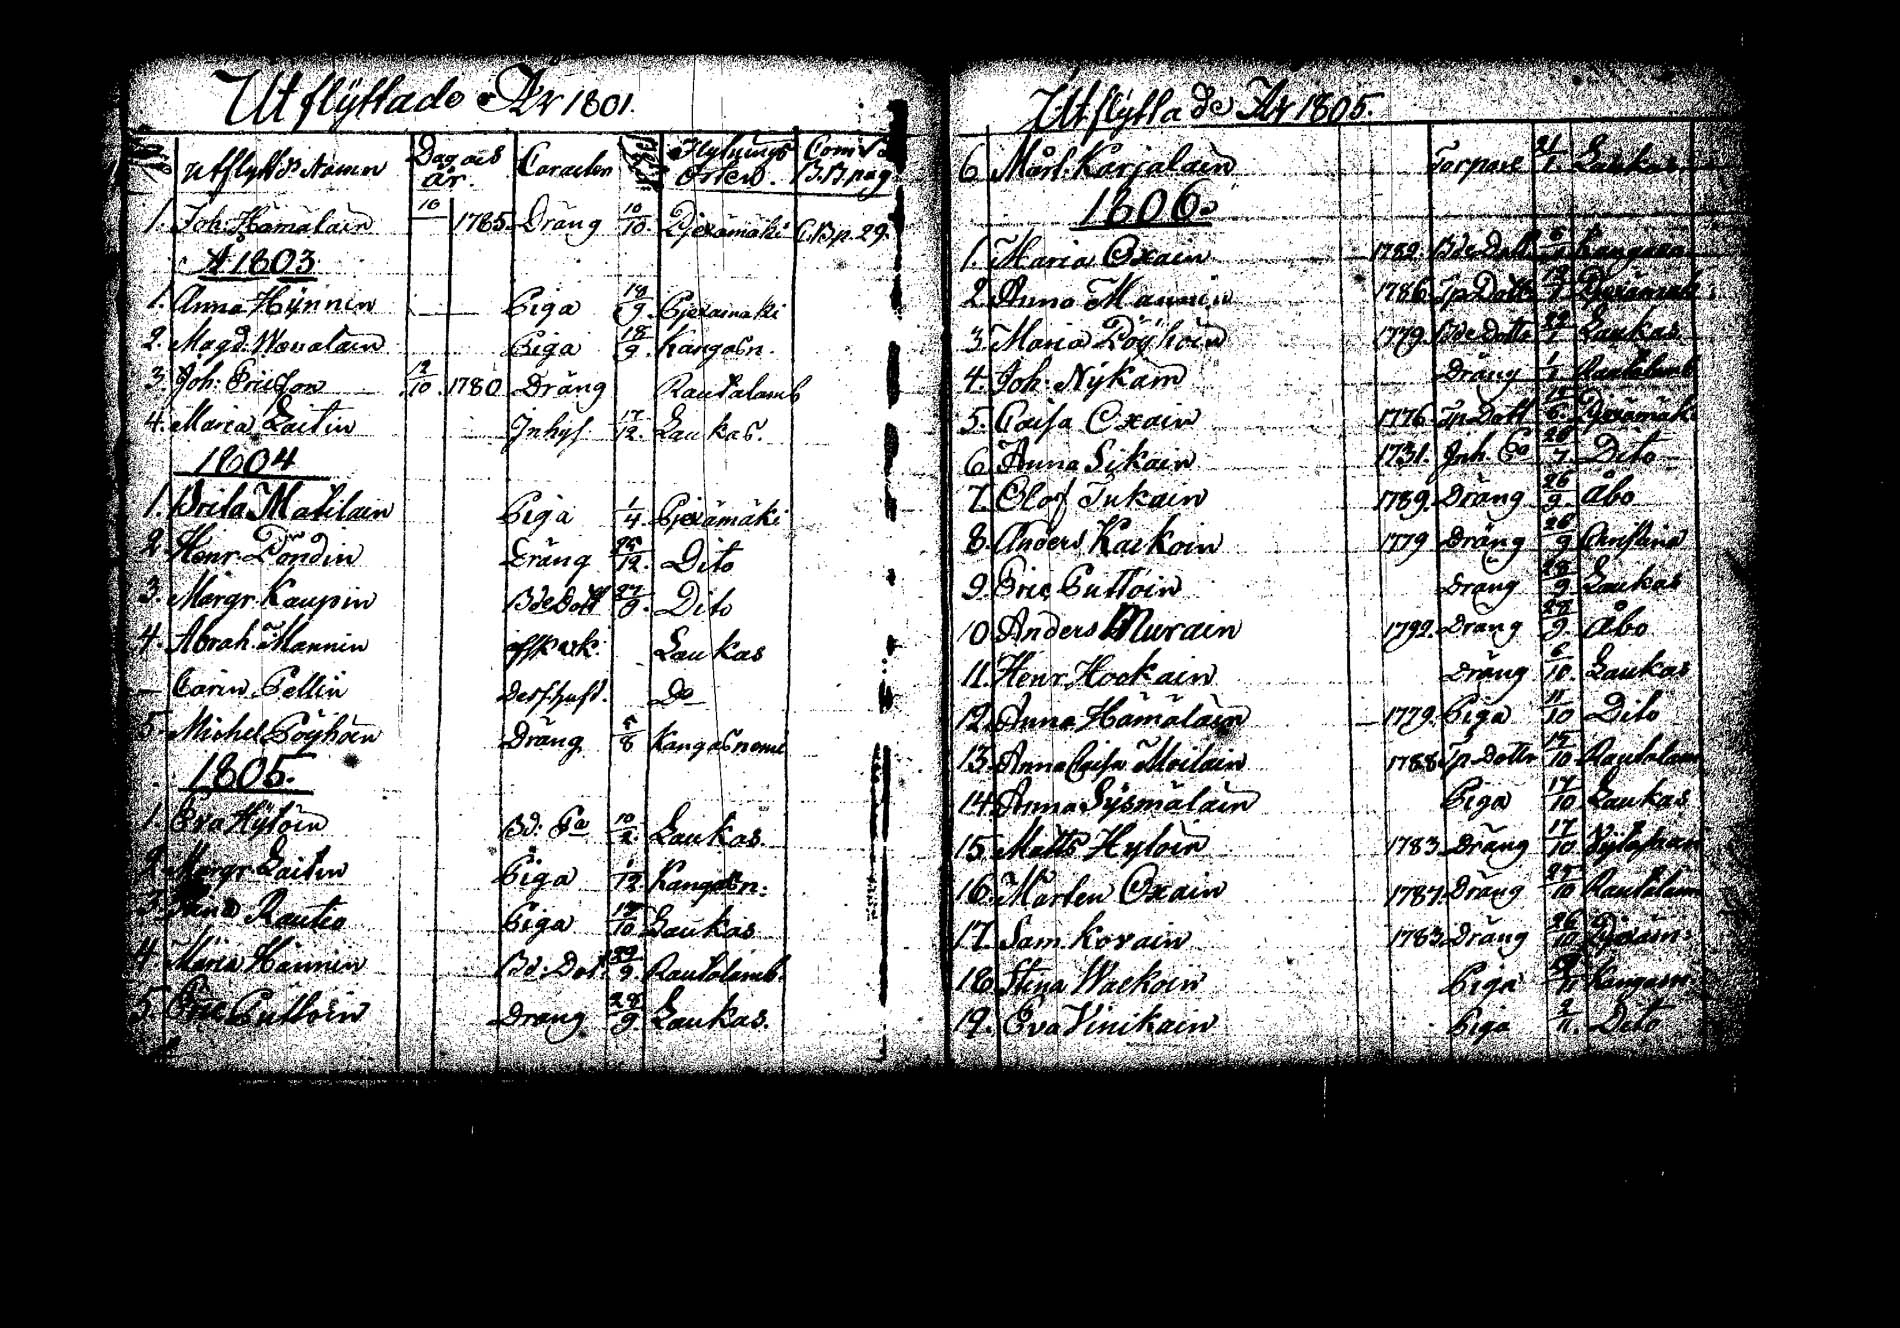 Utflyttade År 1801.
utflytt:s Namn Dag och år. Caracter Flyttnings Orten. Com. B. B pag.
1. Joh: Hämäläin 10 1785 Dräng 10/10. Pjexämäki C.B.p. 29.
A 1803
1. Anna Hÿnnin Piga 18/9. Pjexämäki
2. Magd. Wavalain Piga 18/9. Kangasn.
3. Joh: Ericsson 12/10. 1780 Dräng Rautalamb
4. Maria Laitin Inhys 17/12. Laukas.
1804
1. Brita Matilain Piga 1/4. Pjexämäki
2. Henr. Pöndin Dräng 26/12. Dito
3. Margr. Kaupin Bde Dott 27/9. Dito
4. Abrah. Mannin Laukas
— Carin Pellin Dess hust. Do
5. Michel Pöyhöin Dräng 5/8 Kangasnemi
1805.
1. Eva Hytöin Bd: Sa 10/2. Laukas.
2. Margr. Laitin Piga 1/12 Kangasn:
3. Rautio Piga 13/10 Laukas
4. Maria Hännin Bd: Dot. 9. Rautalamb.
5. Eric Puttoin Dräng 28/9. Laukas.
Utflyttade År 1805.
6 Mårt. Karjalain Torpare 21/1. Laukas
1806.
1. Maria Oxain 1782. Bde Dott. Kangasn
2. Anna Mannin 1786 Tp Dottr Pjexämäki
3. Maria Pöÿhöin 1779. Bde Dottr Laukas
4. Joh: Nÿkäin Dräng 1/1 Rautalamb
5. Caisa Oxain 1776 Tp Dott Pjexämäk:
6 Anna Sikain 1731. Inh. Ea 20/7. Dito
7. Olof Tukain 1789. Dräng 26/9. Åbo
8. Anders Kaikoin 1779 Dräng 26/9 Christina
9. Eric Puttoin Dräng 28/9. Laukas
10 Anders Murain 1792. Dräng 28/9. Åbo
11. Henr. Hookain Dräng 6/10. Laukas
12. Anna Hämäläin 1779. Piga 11/10 Dito
13. Anna Caisa Moilain 1788 Tp. Dottr 15/10 Rautalam
14. Anna Sÿsmäläin Piga 17/10 Laukas
15. Matts Hytöin 1783 Dräng 17/10
16. Mårten Oxain 1787. Dräng 25/10 Rautalam
17. Sam. Kovain 1783 Dräng 26/10 Pjexäm:
18. Stina Waekoin Piga Kangasn
19. Eva Vinikain Piga 2/11. Dito